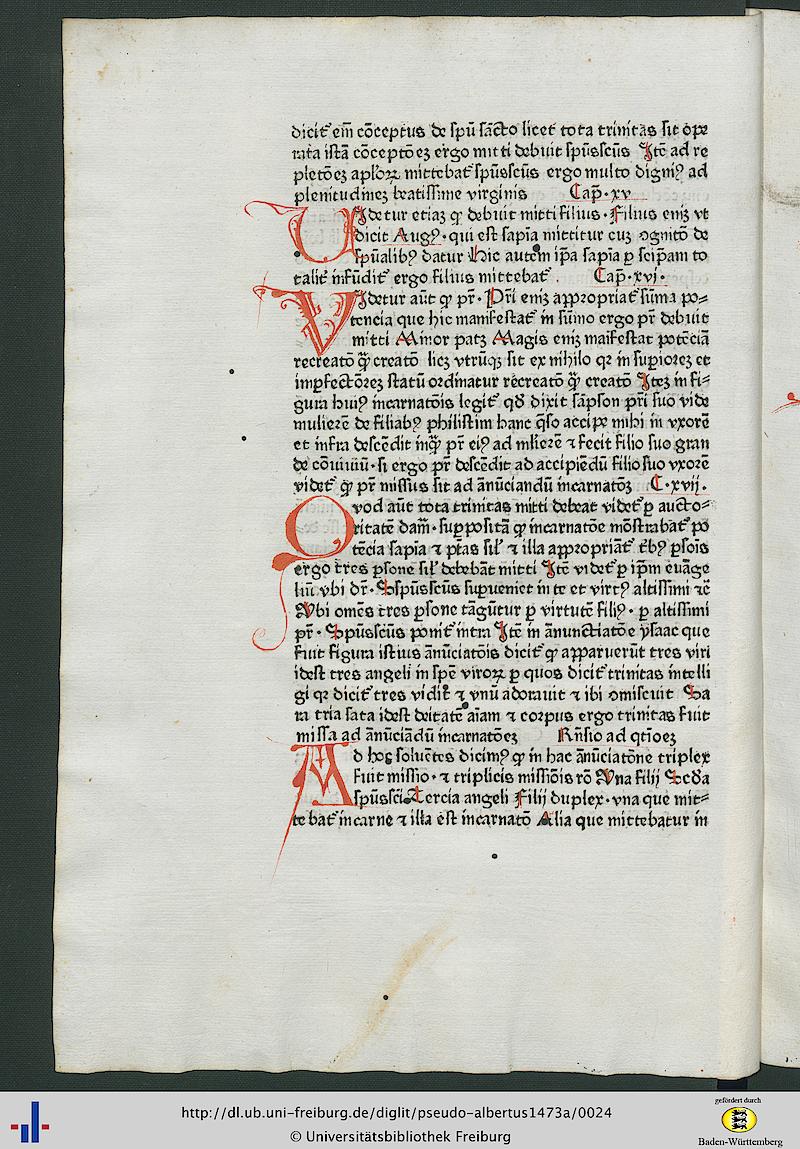 dicit̄ em̄ cōceptus de spū sāc̄to licet tota trinitas sit ope
rata istā cōceptōeʒ ergo mitti debuit spūsscūs Itē ad re
pletōeʒ apl̄oꝝ mittebat̄ spūsscūs ergo multo digniꝰ ad
plenitudineʒ beatissime virginis Cap̄·xv
VIdetur etiaʒ ꝙ debuit mitti filius·Filius eniʒ vt
dicit Augꝰ·qui est sapīa mittitur cuʒ ꝯgnitō de
spūalibꝰ datur Hic autem ip̄a sapīa ꝑ seip̄am to
talit̄ infūdit̄ ergo filius mittebat̄ . Cap̄·xvi·
VIdetur aūt ꝙ pr̄·Pr̄i eniʒ appropriat̄ sūma po⸗
tencia que hic manifestat̄ in sūmo ergo pr̄ debuit
mitti Minor patʒ Magis eniʒ maīfestat potēciā
recreatō q̄ꝫ creatō licʒ vtrūqʒ sit ex nihilo qꝛ in suꝑioreʒ et
imꝑfectōreʒ statū ordinatur recreatō q̄ꝫ creatō Iteʒ in fi⸗
gura huiꝰ incarnatōis legit̄ qđ dixit sāpson pr̄i suo vide
mulierē de filiabꝰ philistim hanc q̄so accipe mihi in vxorē
et infra descēdit inq̄ꝫ pr̄ eiꝰ ad mlierē ⁊ fecit filio suo gran
de cōuiuiū·si ergo pr̄ descēdit ad accipiēdū filio suo vxorē
videt̄ ꝙ pr̄ missus sit ad ānūciandū incarnatōʒ C·xvij.
QVod aūt tota trinitas mitti debeat videt̄ ꝑ aucto⸗
ritatē dam̄·supposita ꝙ incarnatōe mōstrabat̄ po
tēcia sapīa ⁊ p̄tas sil̄ ⁊ illa appropriāt̄ t̄bꝰ ꝑsoīs
ergo tres ꝑsone sil̄ debebāt mitti Itē videt̄ ꝑ ip̄m euāge
liū vbi dr̄·Spūsscūs suꝑueniet in te et virtꝰ altissimi ⁊c̄
Vbi omēs tres ꝑsone tāgūtur ꝑ virtutē filiꝰ·ꝑ altissimi
pr̄·Spūsscūs ponit̄ intra Itē in ānunctiatōe ysaac que
fuit figura istius ānūciatōis dicit̄ ꝙ apparuerūt tres viri
idest tres angeli in spē viroꝝ ꝑ quos dicit̄ trinitas intelli
gi qꝛ dicit̄ tres vidit ⁊ vnū adorauit ⁊ ibi ꝯmiscuit Sa
ra tria sata idest deitatē aīam ⁊ corpus ergo trinitas fuit
missa ad ānūciādū incarnatōeʒ Rn̄sio ad qt̄ioeʒ
AD hoc soluētes dicimꝰ ꝙ in hac ānūciatōne triplex
fuit missio·⁊ triplicis missiōis rō Vna filij Scđa
spūssci·Tercia angeli Filij duplex·vna que mit⸗
tebat̄ incarne ⁊ illa est incarnatō Alia que mittebatur in
http://dl.ub.uni-freiburg.de/diglit/pseudo-albertus1473a/0024
© Universitätsbibliothek Freiburg
gefördert durch
Baden-Württemberg